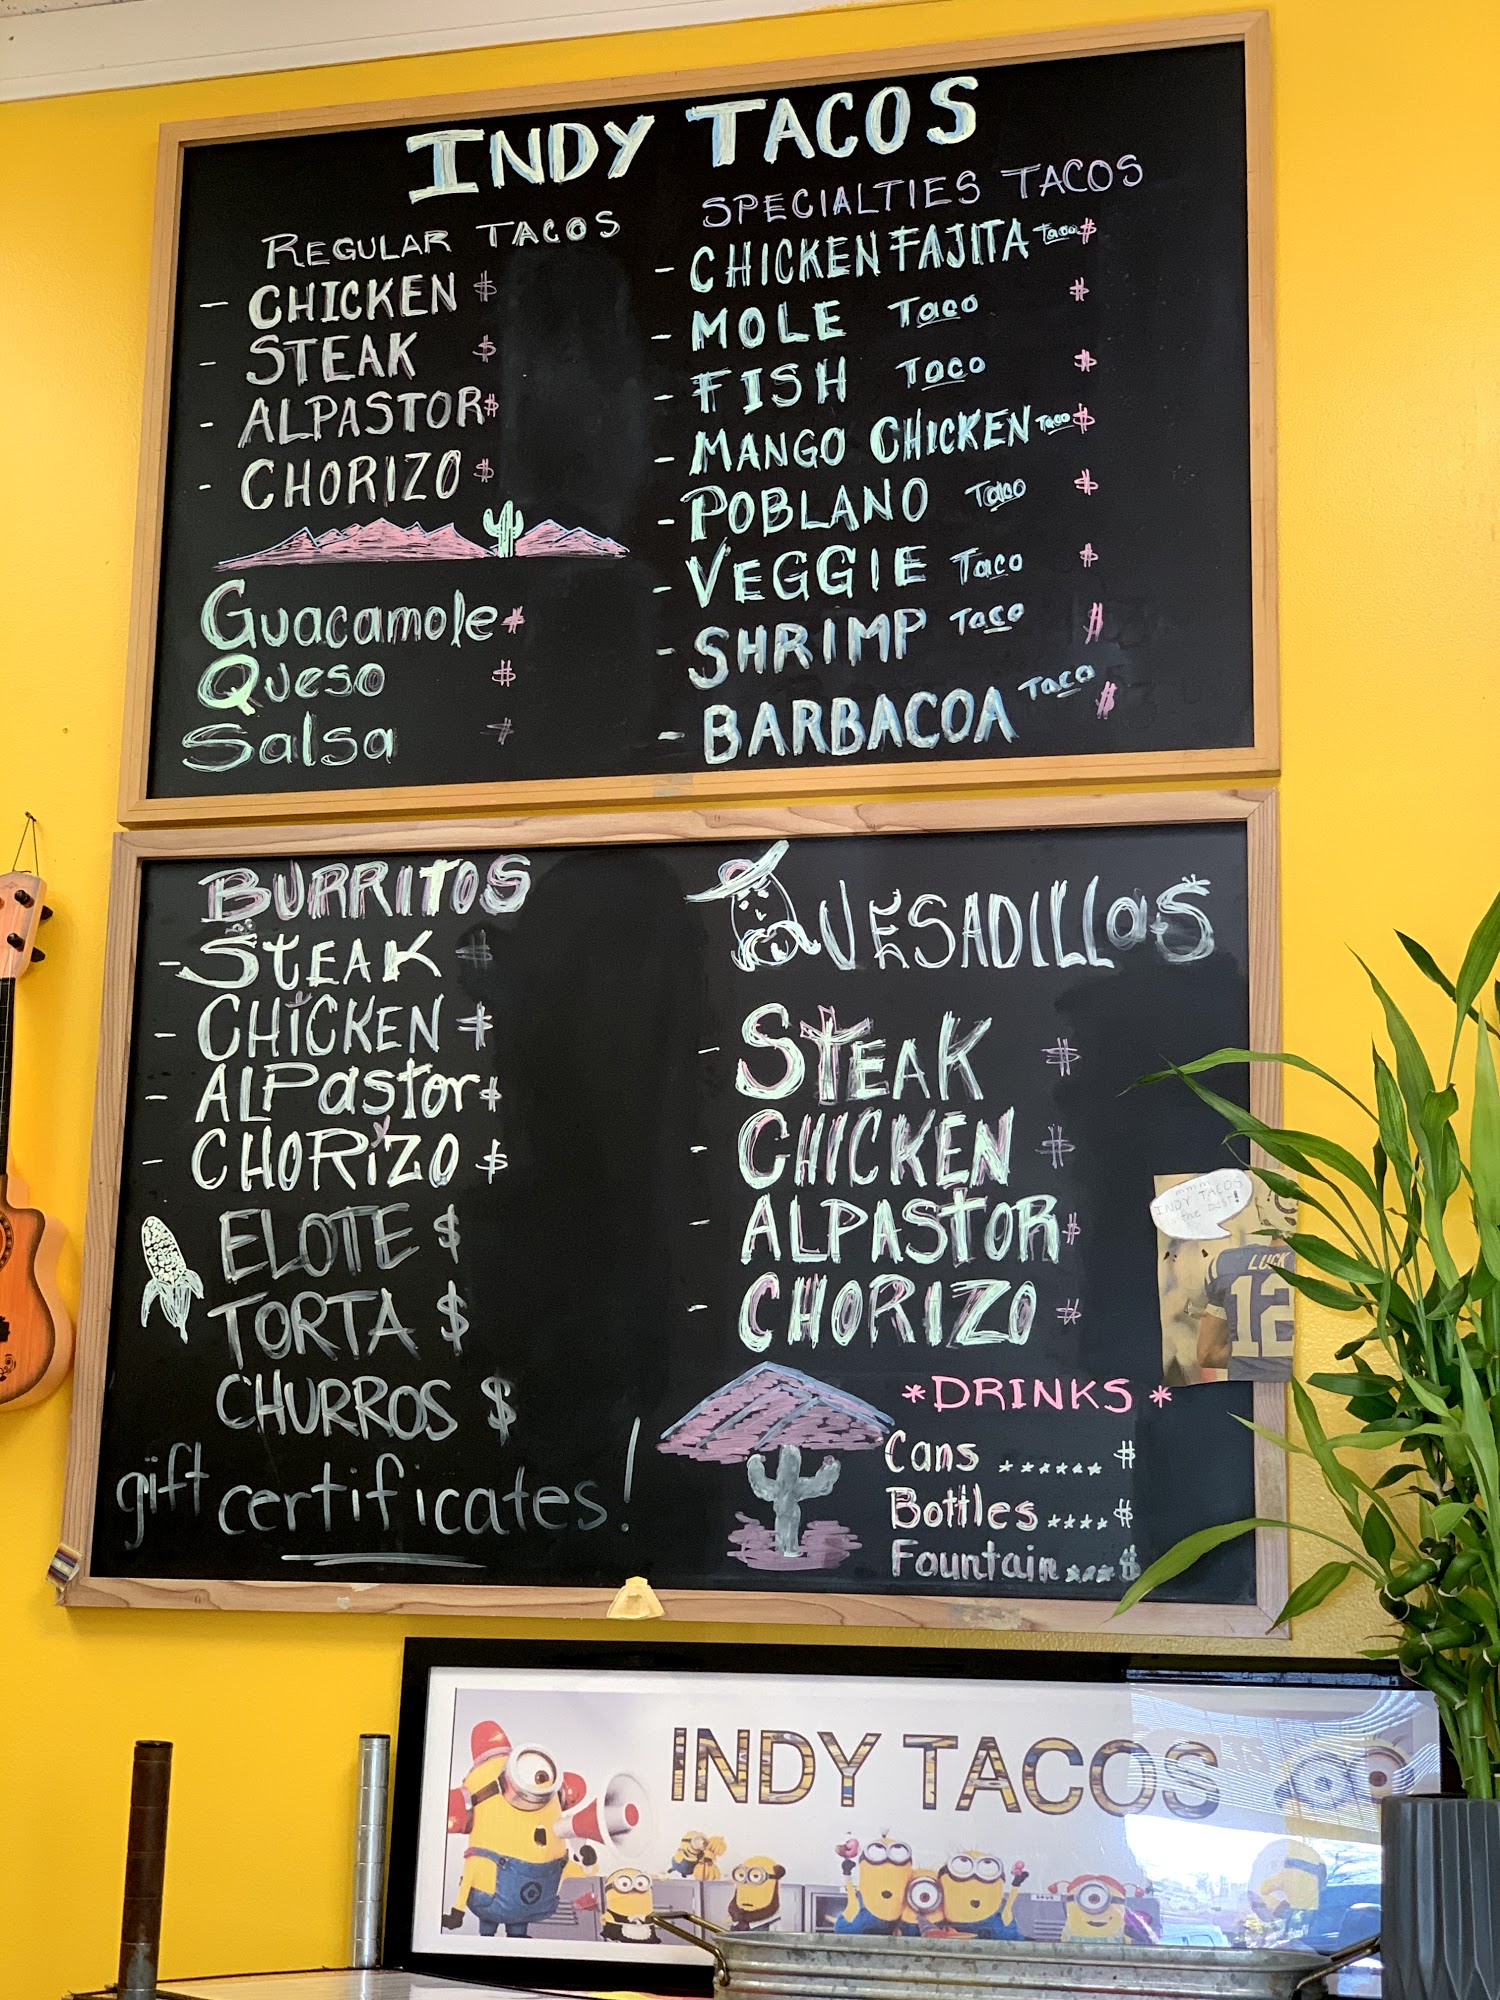 INDY TACOS
REGULAR TACOS
- CHICKEN $
- STEAK $
- ALPASTOR $
- CHORIZO $
Guacamole $
Queso $
Salsa $
SPECIALTIES TACOS
- CHICKEN FAJITA Taco $
- MOLE Taco $
- FISH Taco $
- MANGO CHICKEN Taco $
- POBLANO Taco $
- VEGGIE Taco $
- SHRIMP Taco $
- BARBACOA Taco $
BURRITOS
- STEAK $
- CHICKEN $
- ALPastor $
- CHORiZO $
ELOTE $
TORTA $
CHURROS $
gift certificates!
QUESADILLaS
- STEAK $
- CHICKEN $
- ALPASTOR $
- CHORIZO $
*DRINKS*
Cans ...... $
Bottles .... $
Fountain .... $
mmm
INDY TACOS
LUCK
12
INDY TACOS